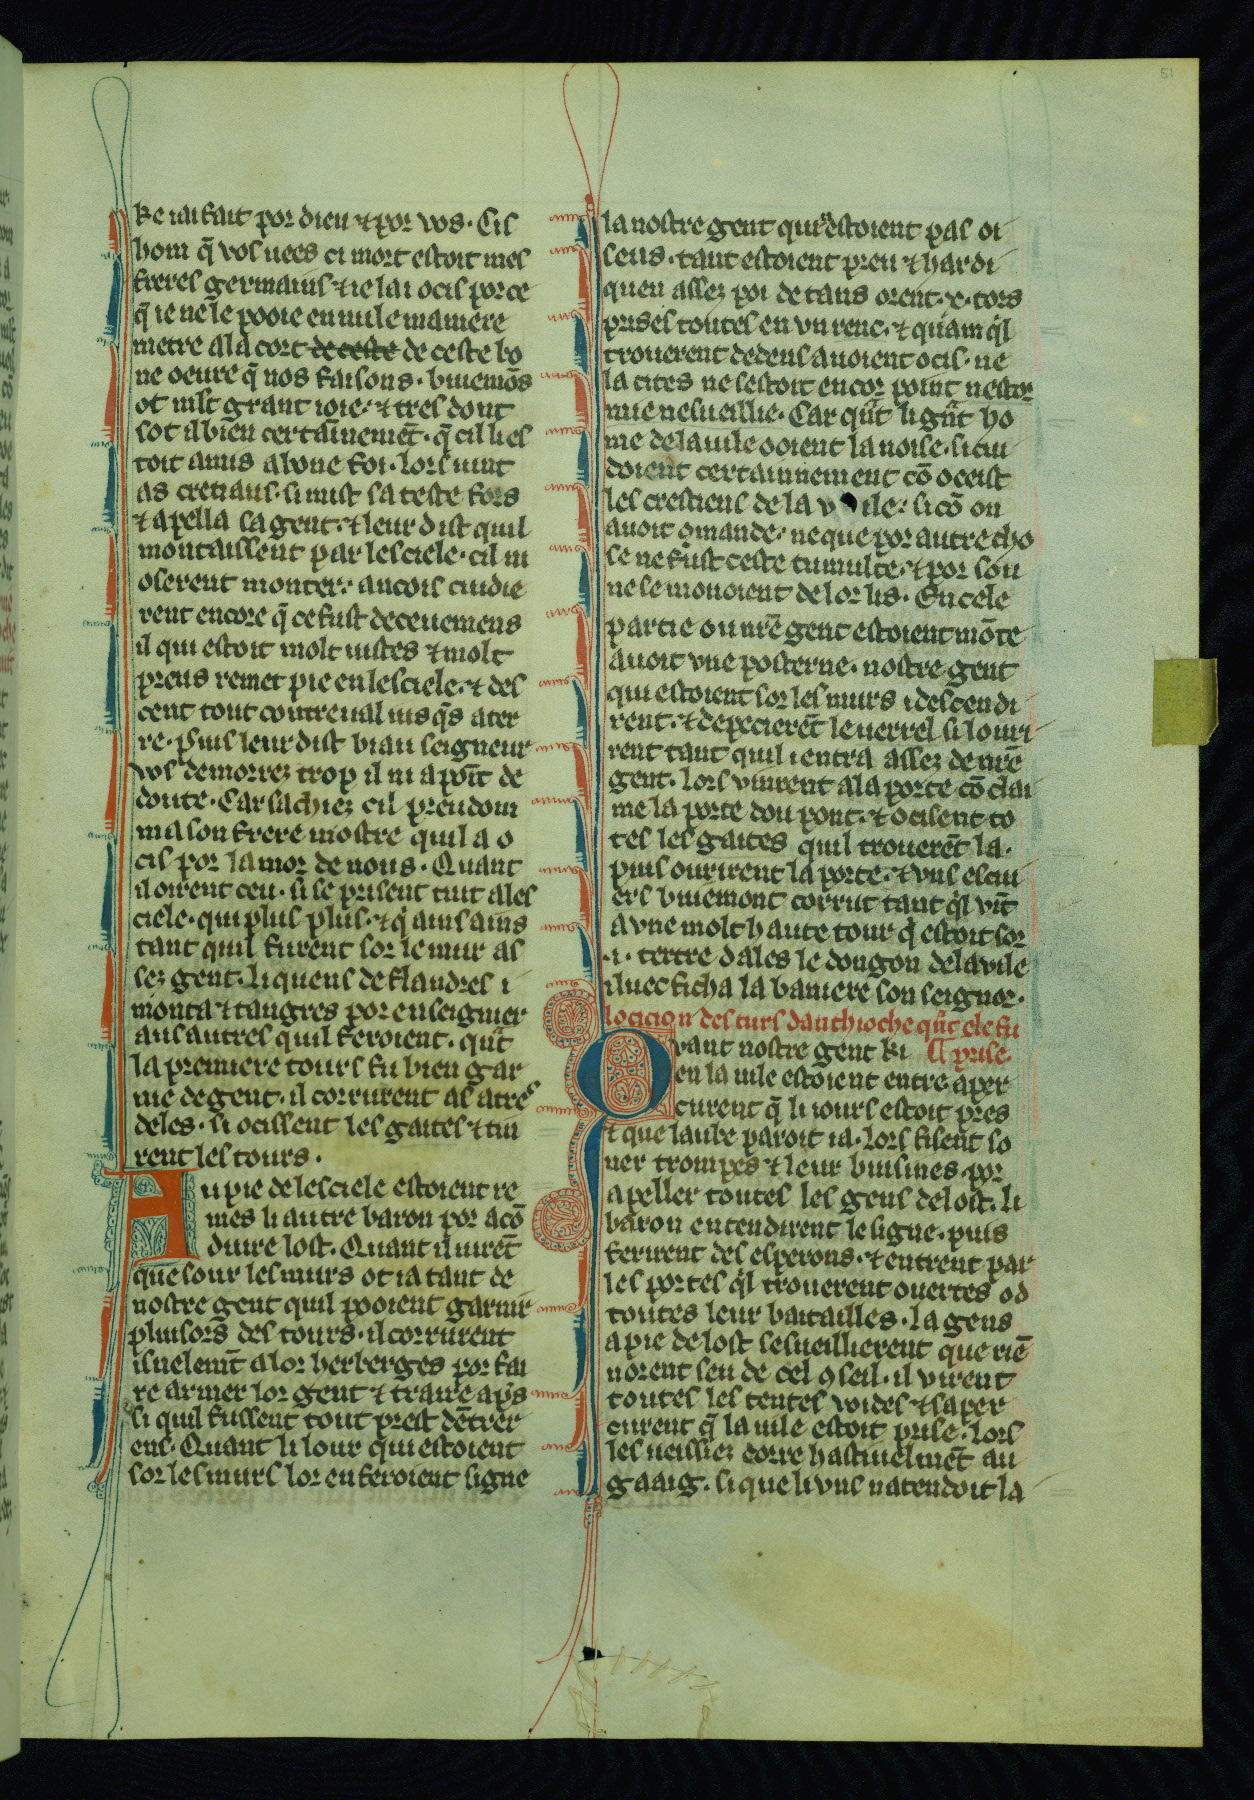 51
ke iai fait por dieu ⁊ por vos. Cil
hom q̃ vos uees ci mort estoit mes
freres germains ⁊ ie lai ocis por ce
q̃ ie ne le pooie en nule maniere
metre a la cort de ceste de ceste bo
ne oeure q̃ nos faisons. buiemõs
ot mlt grant ioie. ⁊ tres dont
sot il bien certainemẽt. q̃ cil li es
toit amis a bone foi. lors uint
as crenaus. si mist sa teste fors
⁊ apella sa gent. ⁊ leur dist quil
montaissent par lesciele. cil ni
oserent monter. ancois cuidie
rent encore q̃ ce fust deceuemens
il qui estoit molt uistes ⁊ molt
preus remet pie en lesciele. ⁊ des
cent tout contreual iusq̃s a ter
re. puis leur dist biau seigneur
vos demorrez trop il ni a poĩt de
doute. Car sachiez cil preudom
ma son frere mostre quil a o
cis por lamor de nous. Quant
il oirent ceu. si se prisent tuit a les
ciele. qui plus plus. ⁊ q̃ ains ains
tant quil furent sor le mur as
sez gent. li quens de flandres i
monta ⁊ tangres por enseignier
aus autres quil feroient. qñt
la premiere tours fu bien gar
nie de gent. il corrurent as atres
deles. si ocissent les gaites ⁊ tin
rent les tours.
Au pie de lesciele estoient re
mes li autre baron por acõ
duire lost. Quant il uirẽt
que sour les murs ot ia tant de
nostre gent quil pooient garnir
pluisors des tours. il corrurent
isnelemt̃ a lor herberges por fai
re armer lor gent ⁊ traire ap̃s
si quil fussent tout prest dẽtrer
ens. Quant li lour qui estoient
sor les murs lor en feroient signe
la nostre gent qui nestoient pas oi
seus. tant estoient preu ⁊ hardi
queu assez poi de tans orent .x. tors
prises toutes en vn renc. ⁊ quam q̃l
trouerent dedens auoient ocis. ne
la cites ne sestoit encor point nestor
mie nesueillie. Car qñt li gñt ho
me de la uile ooient la noise. si cui
doient certainnement cõ oceist
les crestiens de la v ile. si cõ on
auoit ꝯmande. ne que por autre cho
se ne fust ceste tumulte. ⁊ por son
ne se mouoient de lor lis. En cele
partie ou nr̃e gent estoient mõte
auoit vne posterne. nostre gent
qui estoient sor les murs i descendi
rent. ⁊ depecierẽt le uerrel si louri
rent tant quil i entra assez de nr̃e
gent. lors vinrent a la porte cõ clai
me la porte dou pont. ⁊ ocisent to
tes les gaites quil trouerẽt la.
puis ourirent la porte. ⁊ vns escui
ers buiemont corrut tant q̃l vĩt
a vne molt haute tour q̃ estoit sor
.i. tertre dales le dongon de la vile
iluec ficha la baniere son seignor.
locicion des turs danthioche qñt ele fu
prise.
Quant nostre gent ki
en la uile estoient entre aper
curent q̃ li iours estoit pres
⁊ que laube paroit ia. lors fisent so
ner trompes ⁊ leur buisines por
apeller toutes les gens de lost. li
baron entendirent le signe. puis
ferirent des esperons. ⁊ entrent par
les portes q̃l trouerent ouertes od
toutes leur batailles. la gens
a pie de lost sesueillierent que riẽ
norent seu de cel ꝯseil. il virent
toutes les tentes wides ⁊ saper
curent q̃ la uile estoit prise. lors
les ueissiez corre hastiuelmẽt au
gaaig. si que li vns natendoit la